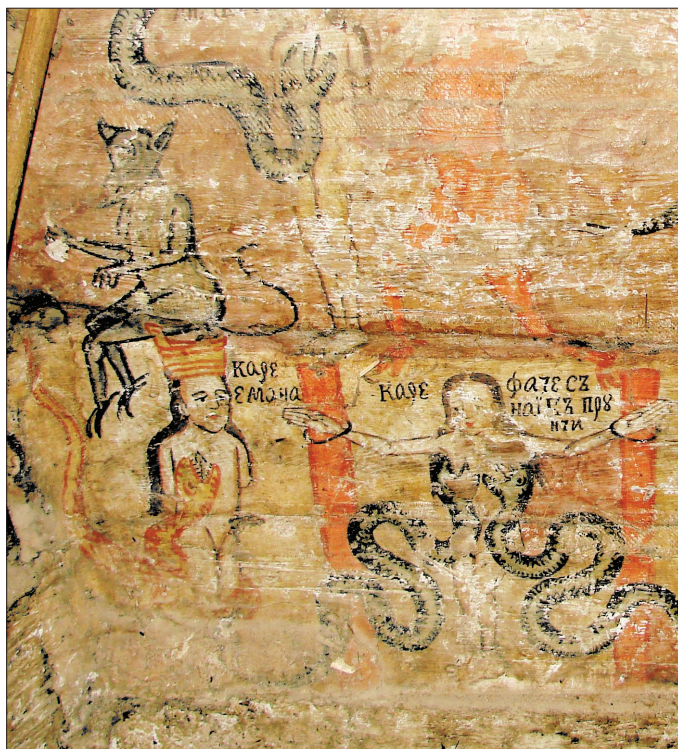 каре
емана
каре
фаче съ
наїбъ пру
нчи